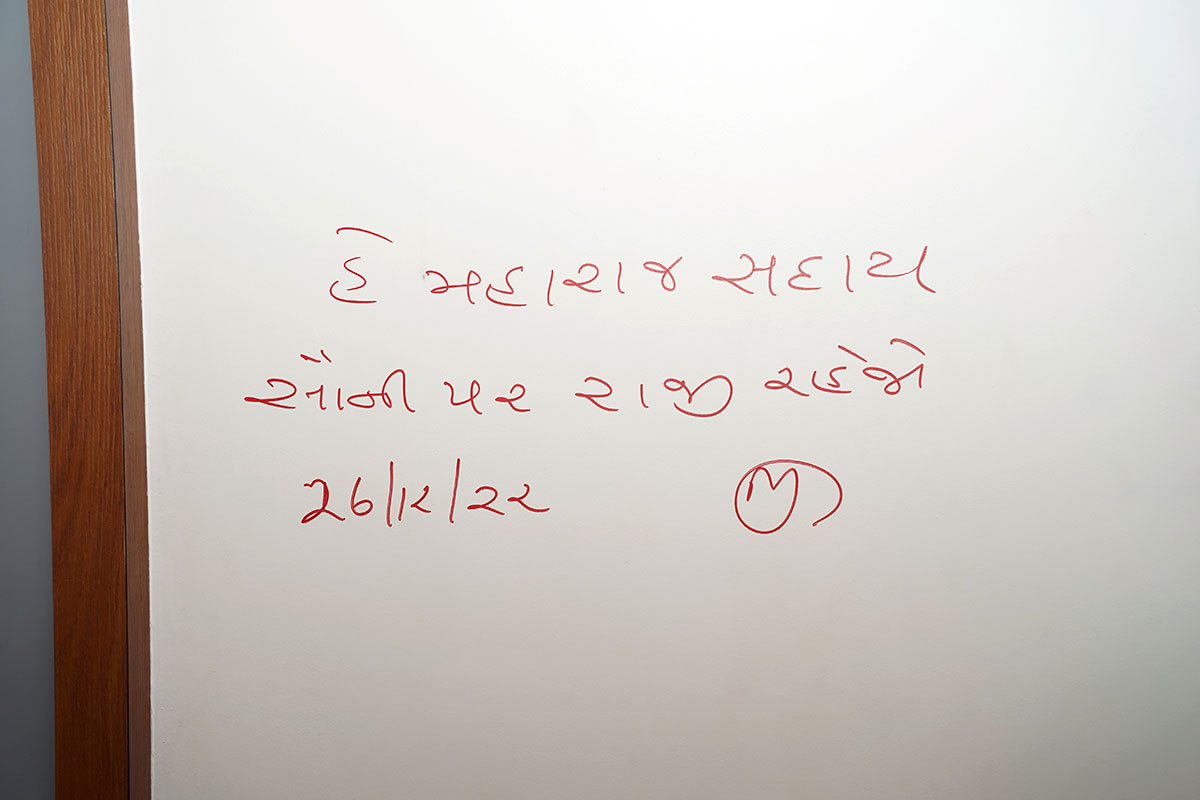 હે મહારાજ સદાય
સૌની પર રાજી રહેજો
26/૧૨/૨૨